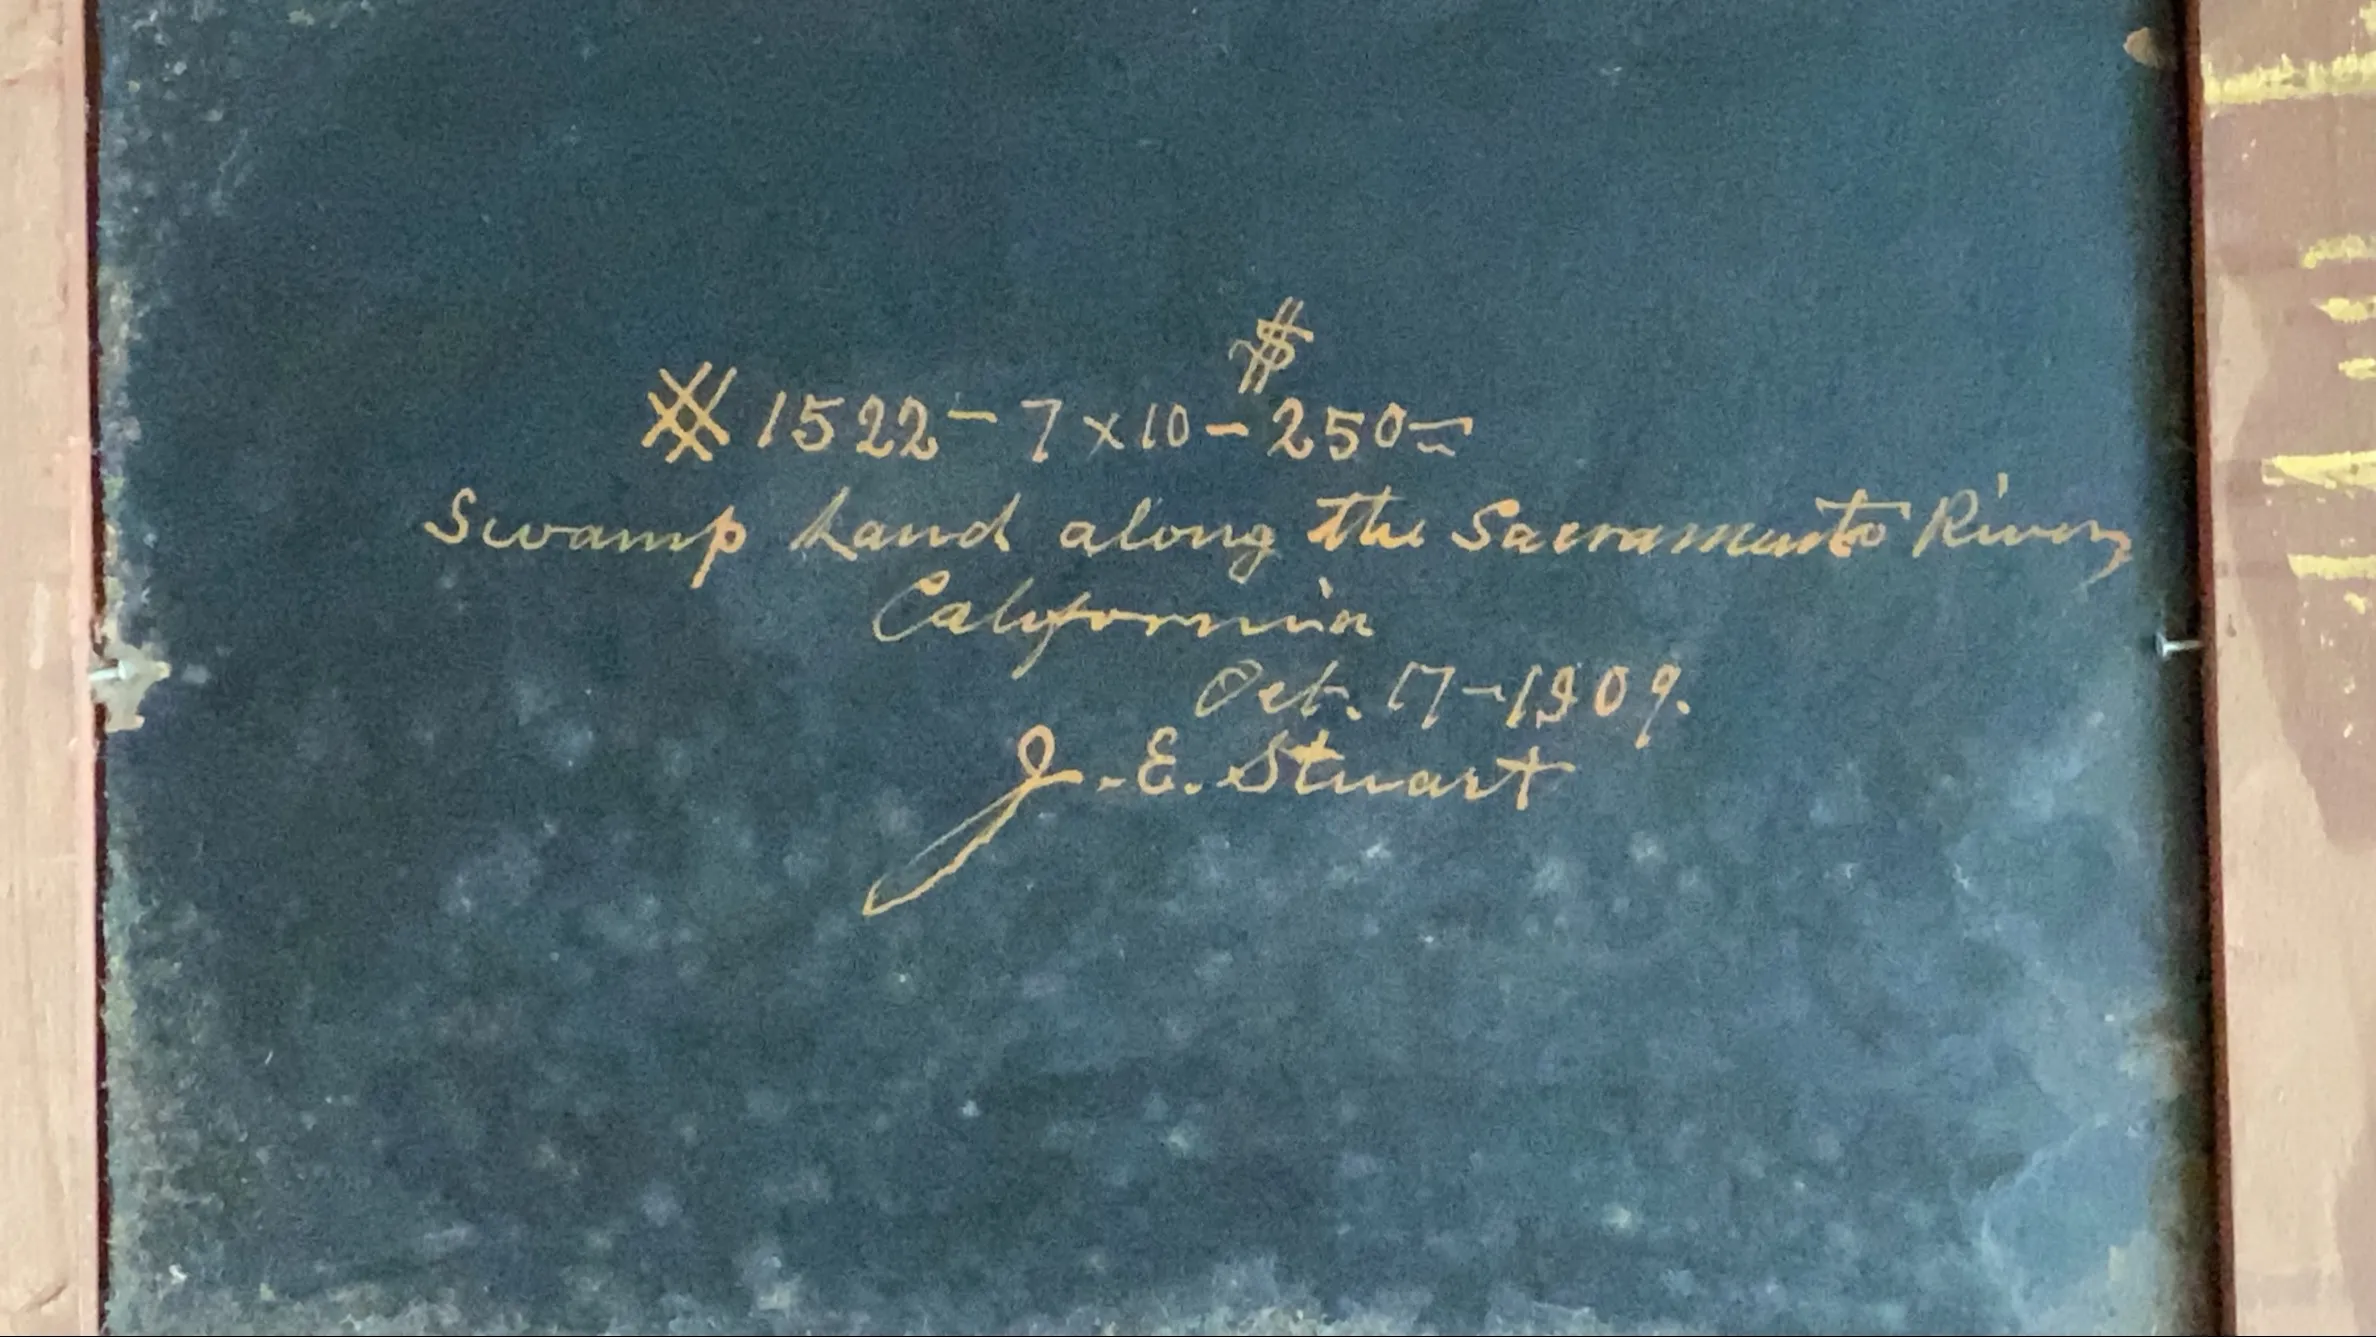 $
# 1522 - 7 x 10 - 250=
Swamp Land along the Sacramento River,
California
Oct. 17-1909.
J. E. Stuart